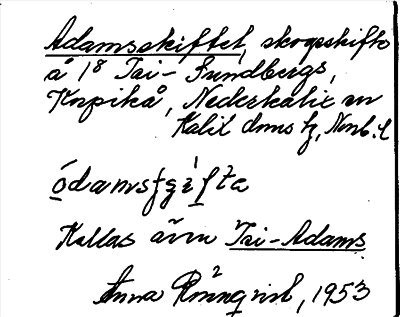 Adamsskiftet, skogsskifte
å 1⁸ Tai-Sundbergs,
Korpikå, Nederkalix sn
Kalix dms h, Nonb. l
ódamsʃʒìfta
Kallas även Tai-Adams
Anna Rönnqvist, 1953